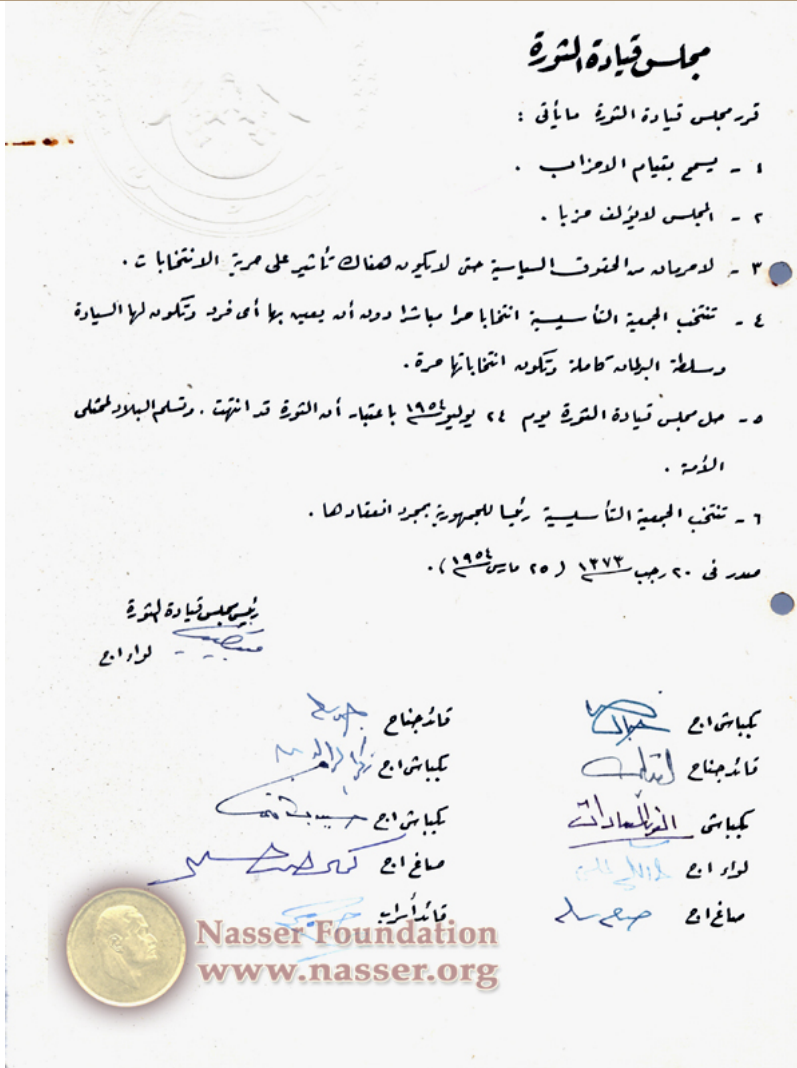 مجلس قيادة الثورة
قرر مجلس قيادة الثورة ما يأتى :
١ - يسمح بقيام الاحزاب .
٢ - المجلس لا يؤلف حزبا .
٣ - لا حرمان من الحقوق السياسية حتى لا يكون هناك تأثير على حرية الانتخابات .
٤ - تنتخب الجمعية التأسيسية انتخابا حرا مباشرا دون أن يعين بها أى فرد وتكون لها السيادة
وسلطة البرلمان كاملة وتكون انتخاباتها حرة .
٥ - حل مجلس قيادة الثورة يوم ٢٤ يوليو ١٩٥٤ باعتبار أن الثورة قد انتهت . وتسلم البلاد لممثلى
الأمة .
٦ - تنتخب الجمعية التأسيسية رئيسا للجمهورية بمجرد انعقادها .
صدر فى ٢٠ رجب ١٣٧٣ ( ٢٥ مارس ١٩٥٤ ) .
رئيس مجلس قيادة الثورة
لواء ا.ح
بكباشى ا.ح جمال
قائد جناح
بكباشى أنور السادات
لواء ا.ح
صاغ ا.ح صلاح سالم
قائد جناح جمال سالم
بكباشى ا.ح زكريا
بكباشى ا.ح حسين
صاغ ا.ح كمال الدين حسين
قائد أسراب
Nasser Foundation
www.nasser.org